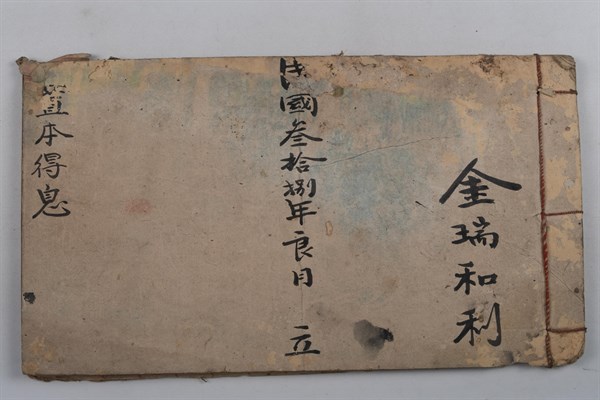 金瑞和利
民國叁拾捌年良月 立
置本得息